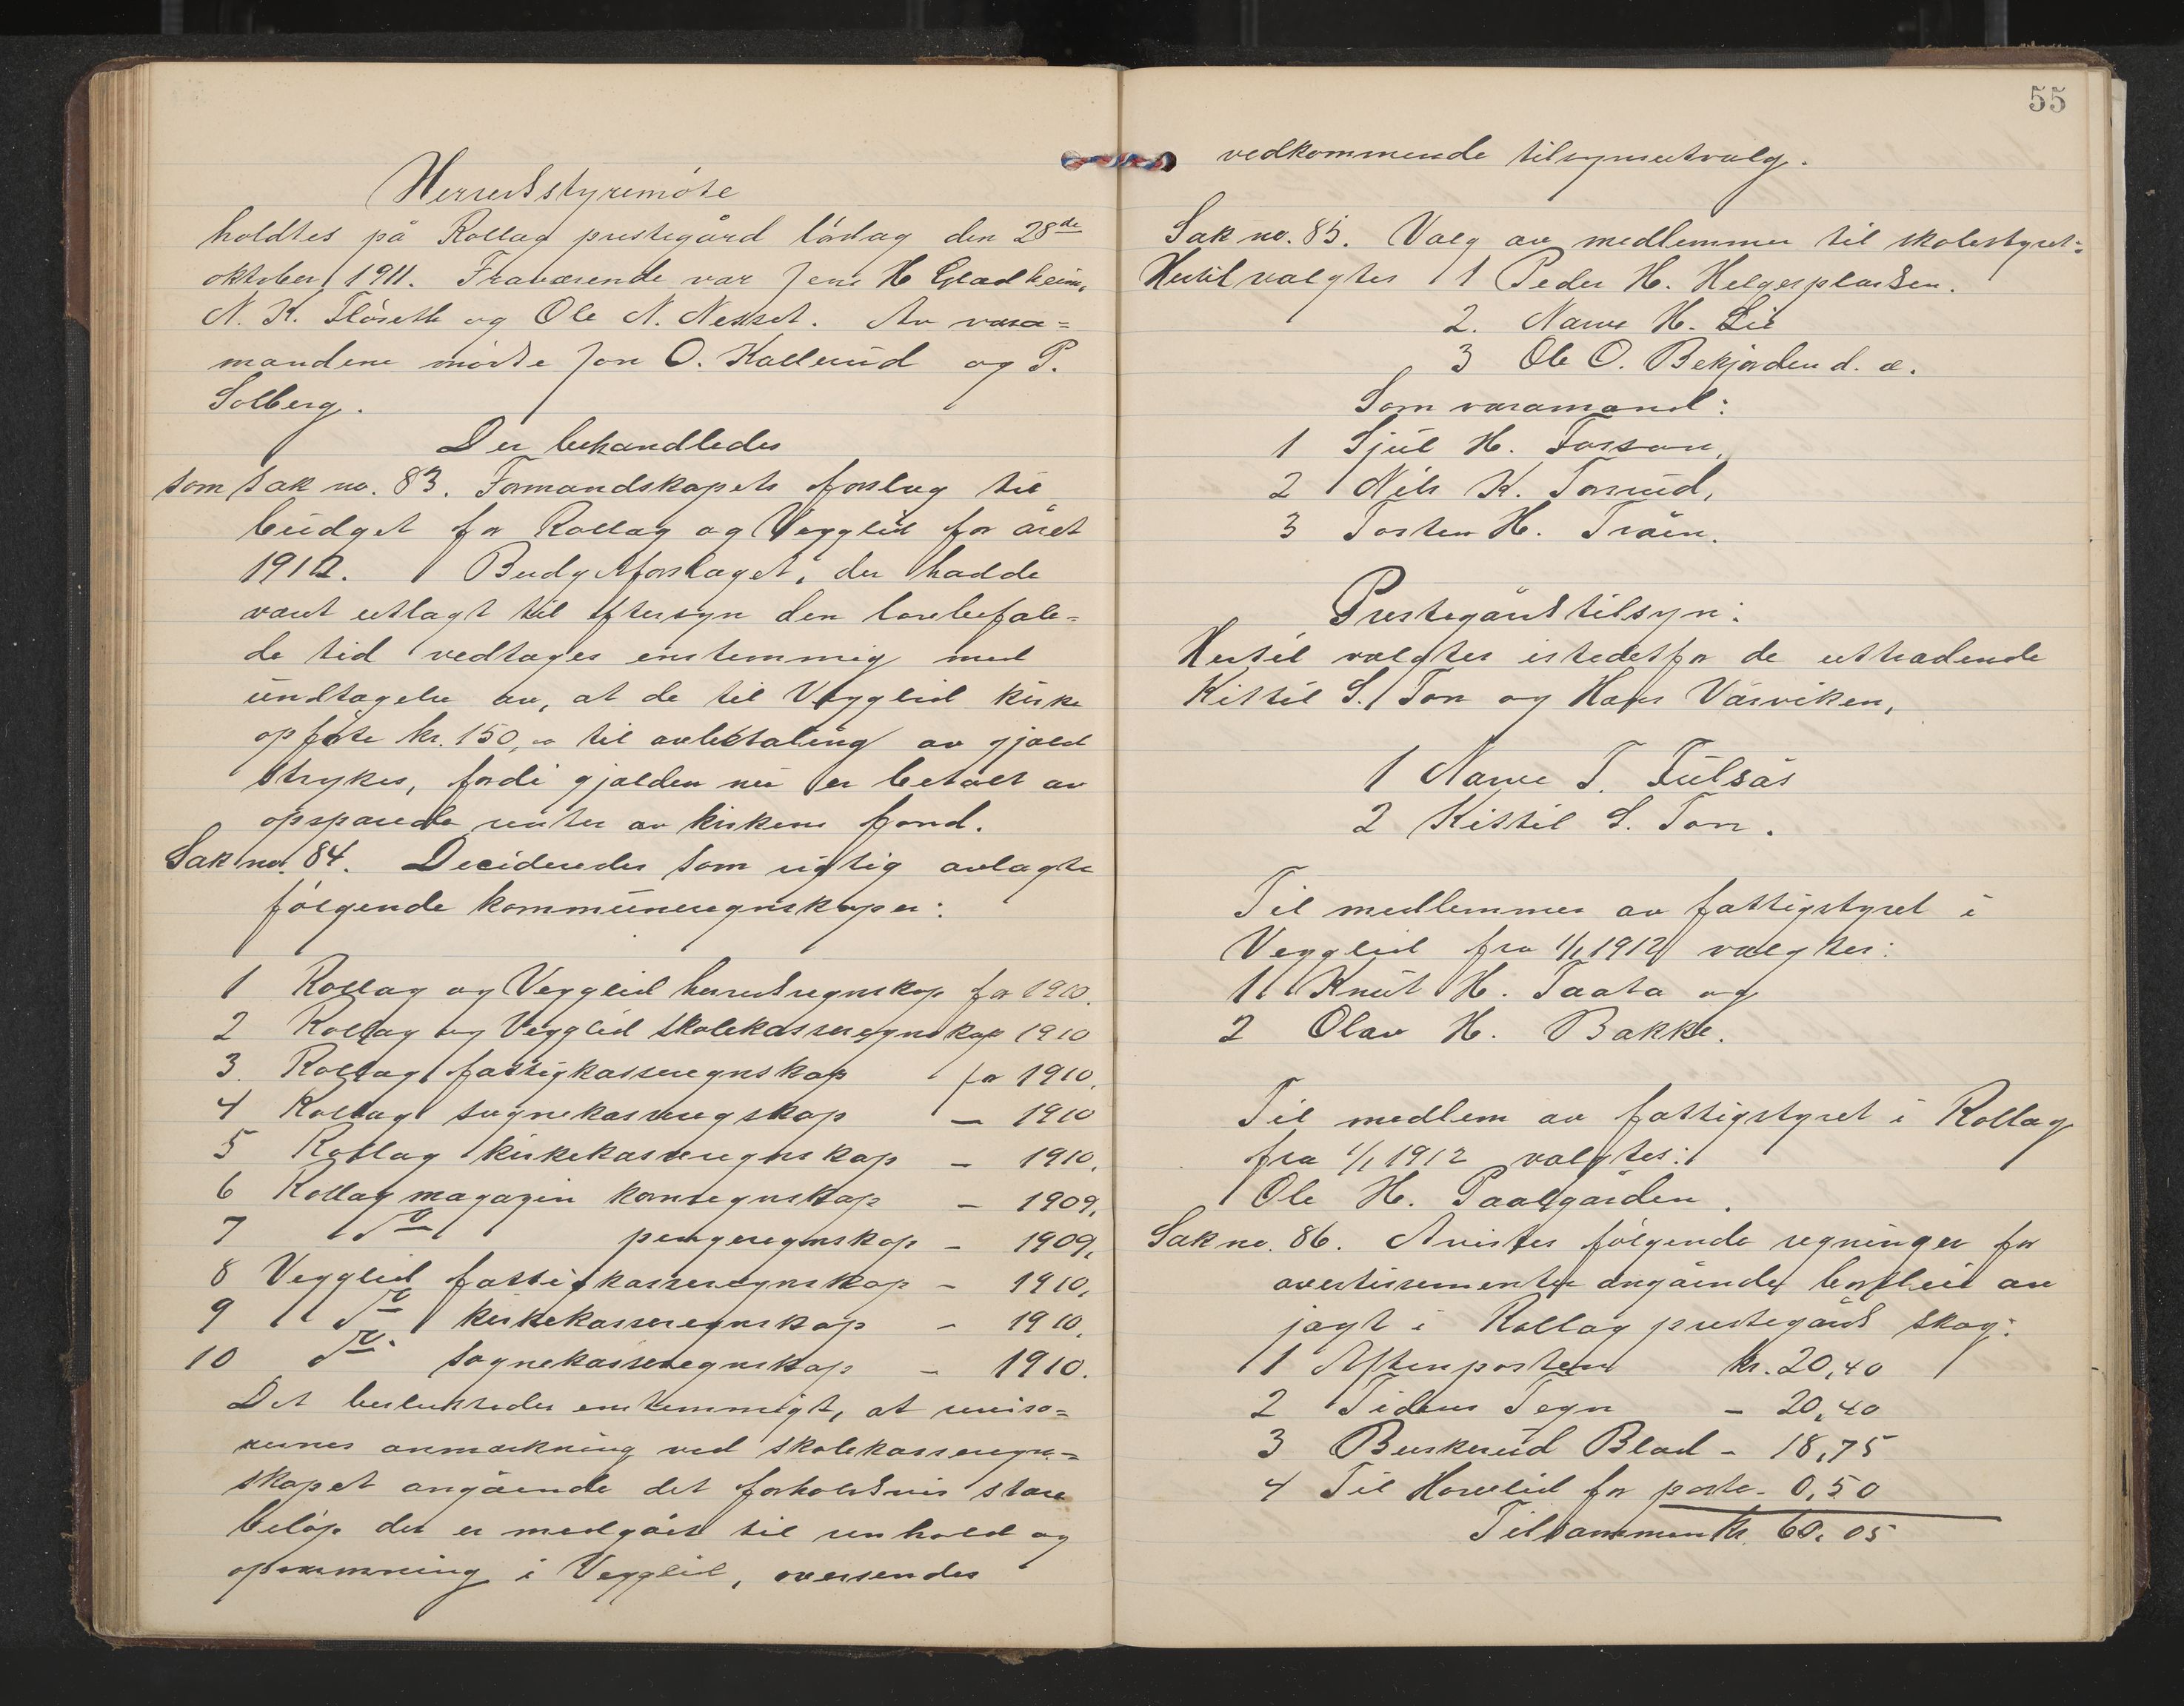 Herredsstyremöte
holdtes på Rollag prestegård lördag den 28de
oktober 1911. Fraværende var Jens H Gladheim,
N. K. Flöseth og Ole N. Nesset. Av vara=
mandene mötte Jon O. Kallerud og P.
Solberg.
Der behandledes
som sak no. 83. Formandskapets forslag til
budget for Rollag og Vegglid for året
1912. Budgetforslaget, der hadde
været utlagt til eftersyn den lovbefale=
de tid vedtages enstemmig med
undtagelse av, at de til Vegglid kirke
opförte kr. 150,00 til avbetaling av gjæld
strykes, fordi gjælden nu er betalt av
opsparede renter av kirkens fond.
Sak no. 84. Decideredes som rigtig avlagte
fölgende kommuneregnskaper:
1 Rollag og Vegglid herredsregnskap for 1910.
2 Rollag og Vegglid skolekasseregnskap 1910
3. Rollag fattigkasseregnskap for 1910.
4 Rollag sognekasseregskap — 1910
5 Rollag kirkekasseregnskap — 1910.
6 Rollag magazin kornregnskap — 1909.
7 do pengeregnskap — 1909.
8 Vegglid fattigkasseregnskap — 1910.
9 do kirkekasseregnskap — 1910.
10 do sognekasseregnskap — 1910.
Det besluttedes enstemmigt, at reviso=
rernes anmerkning ved skolekasseregn=
skapet angående det forholdsvis store
belöp der er medgået til renhold og
opvarmning i Vegglid, oversendes
55
vedkommende tilsynsutvalg.
Sak no. 85. Valg av medlemmer til skolestyret:
Hertil valgtes 1 Peder H. Helgesplassen.
2. Narve H. Lie
3 Ole O. Bekjorden d. æ.
Som varamænd:
1 Sjul H.
2 Nils K. Torsrud,
3 Tosten H. Tråen.
Prestegårdstilsyn:
Hertil valgtes istedetfor de uttrædende
Kittil S. Ton og Hans Vårviken,
1 Narve T. Fulsås
2 Kittil S. Ton.
Til medlemmer av fattigstyret i
Vegglid fra 1/1 1912 valgtes:
1 Knut H. Taata og
2 Olav H. Bakke.
Til medlem av fattigstyret i Rollag
fra 1/1 1912 valgtes:
Ole H. Paalgården.
Sak no. 86. Anvistes fölgende regninger for
avertissementer angående bortleie av
jagt i Rollag prestegårds skog:
1 Aftenposten kr. 20,40
2 Tidens Tegn — 20,40
3 Buskerud Blad — 18,75
4 Til Hovelid for porto — 0,50
Tilsammen Kr. 60,05